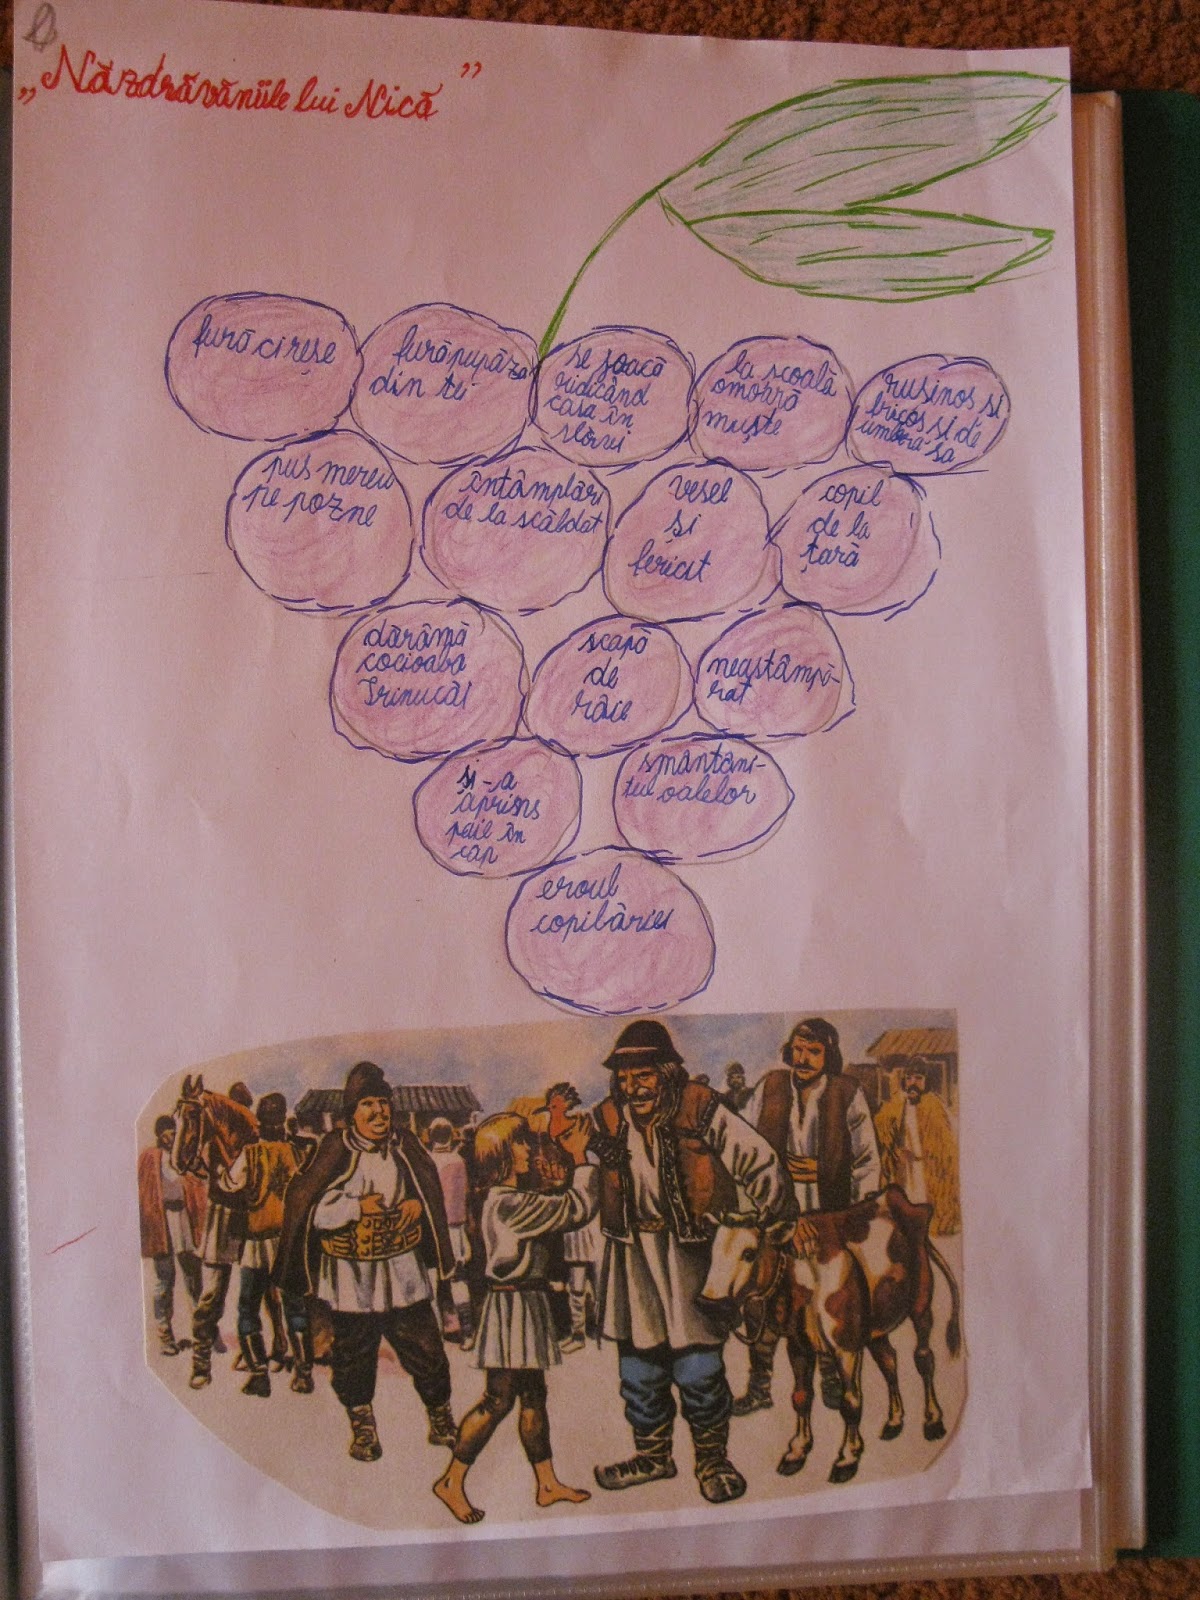 „Năzdrăvăniile lui Nică”
fură cireșe
fură pupăza
din tei
se joacă
ridicând
casa în
slăvi
la școală
omoară
muște
rusinos si
fricos si de
umbra-sa
pus mereu
pe pozne
întâmplări
de la scăldat
vesel
și
fericit
copil
de la
țară
dărâmă
cocioaba
Irinucăi
scapă
de
râie
neastâmpă-
rat
și-a
aprins
paie în
cap
smântâni-
tul oalelor
eroul
copilăriei